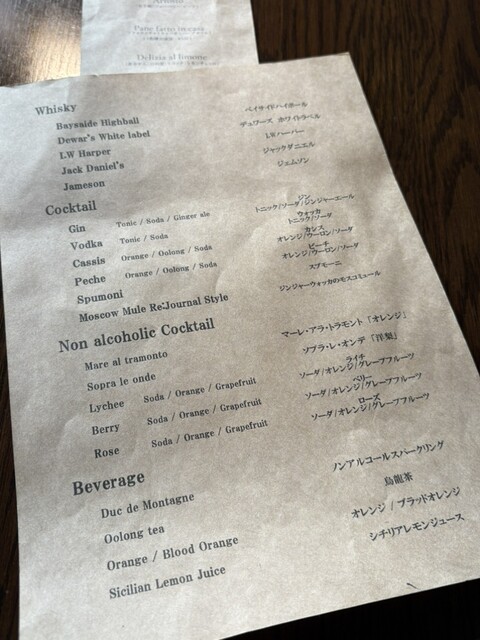 Pane fatto in casa
Delizia al limone
Whisky
Bayside Highball ベイサイドハイボール
Dewar's White label デュワーズ ホワイトラベル
I.W Harper I.Wハーパー
Jack Daniel's ジャックダニエル
Jameson ジェムソン
Cocktail
Gin Tonic / Soda / Ginger ale ジン
トニック/ソーダ/ジンジャーエール
Vodka Tonic / Soda ウォッカ
トニック/ソーダ
Cassis Orange / Oolong / Soda カシス
オレンジ/ウーロン/ソーダ
Peche Orange / Oolong / Soda ピーチ
オレンジ/ウーロン/ソーダ
Spumoni スプモーニ
Moscow Mule Re:Journal Style ジンジャーウォッカのモスコミュール
Non alcoholic Cocktail
Mare al tramonto マーレ・アラ・トラモント「オレンジ」
Sopra le onde ソプラ・レ・オンデ「洋梨」
Lychee Soda / Orange / Grapefruit ライチ
ソーダ/オレンジ/グレープフルーツ
Berry Soda / Orange / Grapefruit ベリー
ソーダ/オレンジ/グレープフルーツ
Rose Soda / Orange / Grapefruit ローズ
ソーダ/オレンジ/グレープフルーツ
Beverage
Duc de Montagne ノンアルコールスパークリング
Oolong tea 烏龍茶
Orange / Blood Orange オレンジ / ブラッドオレンジ
Sicilian Lemon Juice シチリアレモンジュース